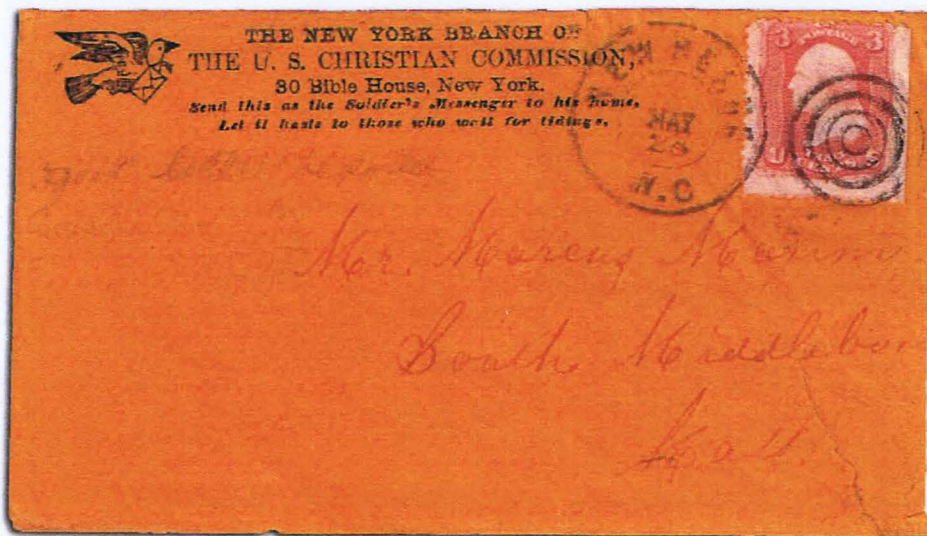 THE NEW YORK BRANCH OF
THE U. S. CHRISTIAN COMMISSION,
30 Bible House, New York.
Send this as the Soldier's Messenger to his home,
Let it haste to those who wait for tidings.
MAY
28
N.C
3 POSTAGE 3
Mr. Marcus
South Middlebor
Mass.